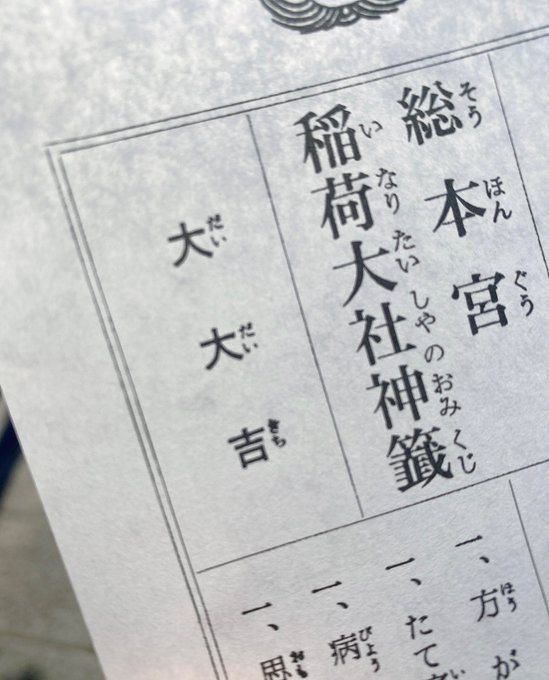 総本宮
稲荷大社神籤
大大吉
一、方が
一、たて
一、病
一、思